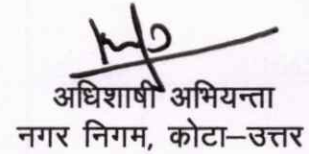 अधिशाषी अभियन्ता
नगर निगम, कोटा–उत्तर